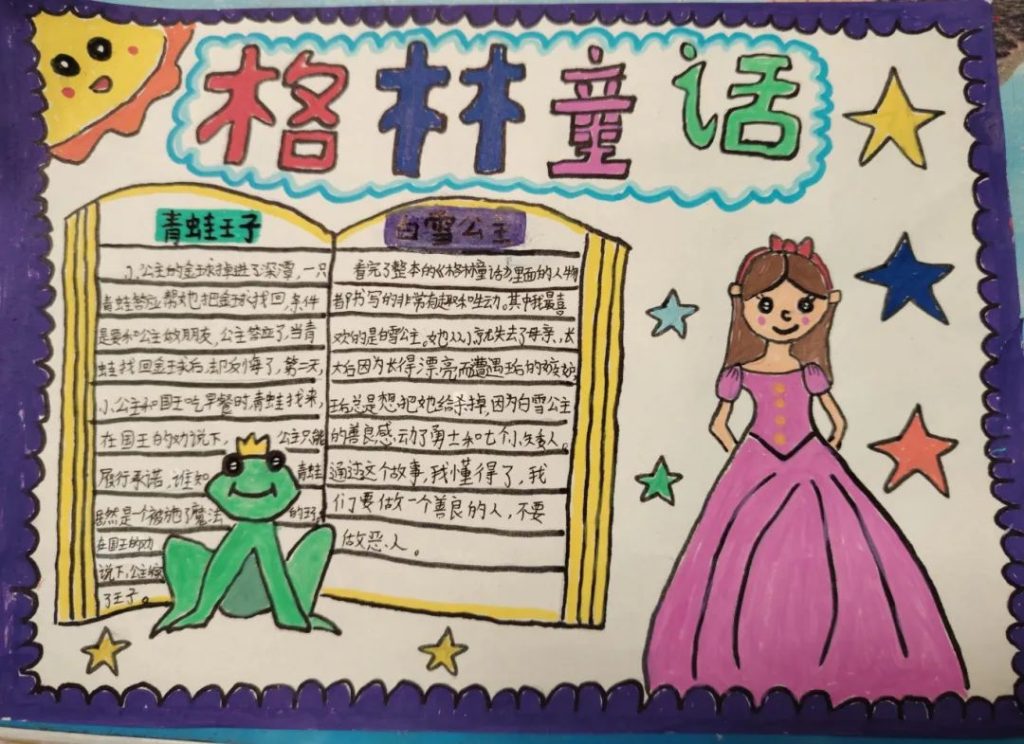 格林童话
青蛙王子
小公主的金球掉进了深潭，一只
青蛙答应帮她把金球找回，条件
是要和公主做朋友，公主答应了，当青
蛙找回金球后，却反悔了，第二天，
小公主和国王吃早餐时，青蛙找来，
在国王的劝说下，公主只能
履行承诺，谁知青蛙
居然是个被施了魔法的王子，
在国王的劝
说下，公主嫁
了王子。
白雪公主
看完了整本的《格林童话》里面的人物
都书写的非常有趣和生动。其中我最喜
欢的是白雪公主。她从小就失去了母亲，长
大后因为长得漂亮而遭遇王后的嫉妒，
王后总是想把她给杀掉，因为白雪公主
的善良感动了勇士和七个小矮人。
通过这个故事，我懂得了，我
们要做一个善良的人，不要
做恶人。